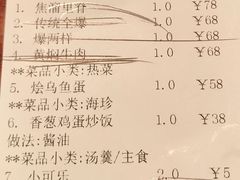 1. 焦溜里脊 1.0 ¥78
2. 传统全爆 1.0 ¥68
3. 爆两样 1.0 ¥68
4. 黄焖牛肉 1.0 ¥68
**菜品小类:热菜
5 烩乌鱼蛋 1.0 ¥58
**菜品小类:海珍
6 香葱鸡蛋炒饭 1.0 ¥38
做法:酱油
**菜品小类:汤羹/主食
7 小可乐 2.0 ¥5